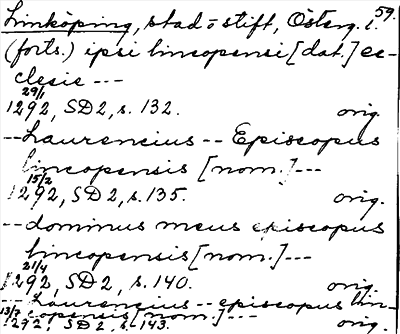 59.
Linköping, stad o stift, Österg. l.
(forts.) ipsi lincopensi [dat.] ec-
clesie ---
29/1
1292, SD2, s. 132. orig.
-- Laurencius -- Episcopus
lincopensis [nom.] ---
15/2
1292, SD2, s. 135. orig.
-- dominus meus episcopus
lincopensis [nom.] ---
21/4
1292, SD2, s. 140. orig.
--- Laurencius -- episcopus lin-
copensis [nom.] ---
13/7
1292, SD2, s. 143. orig.